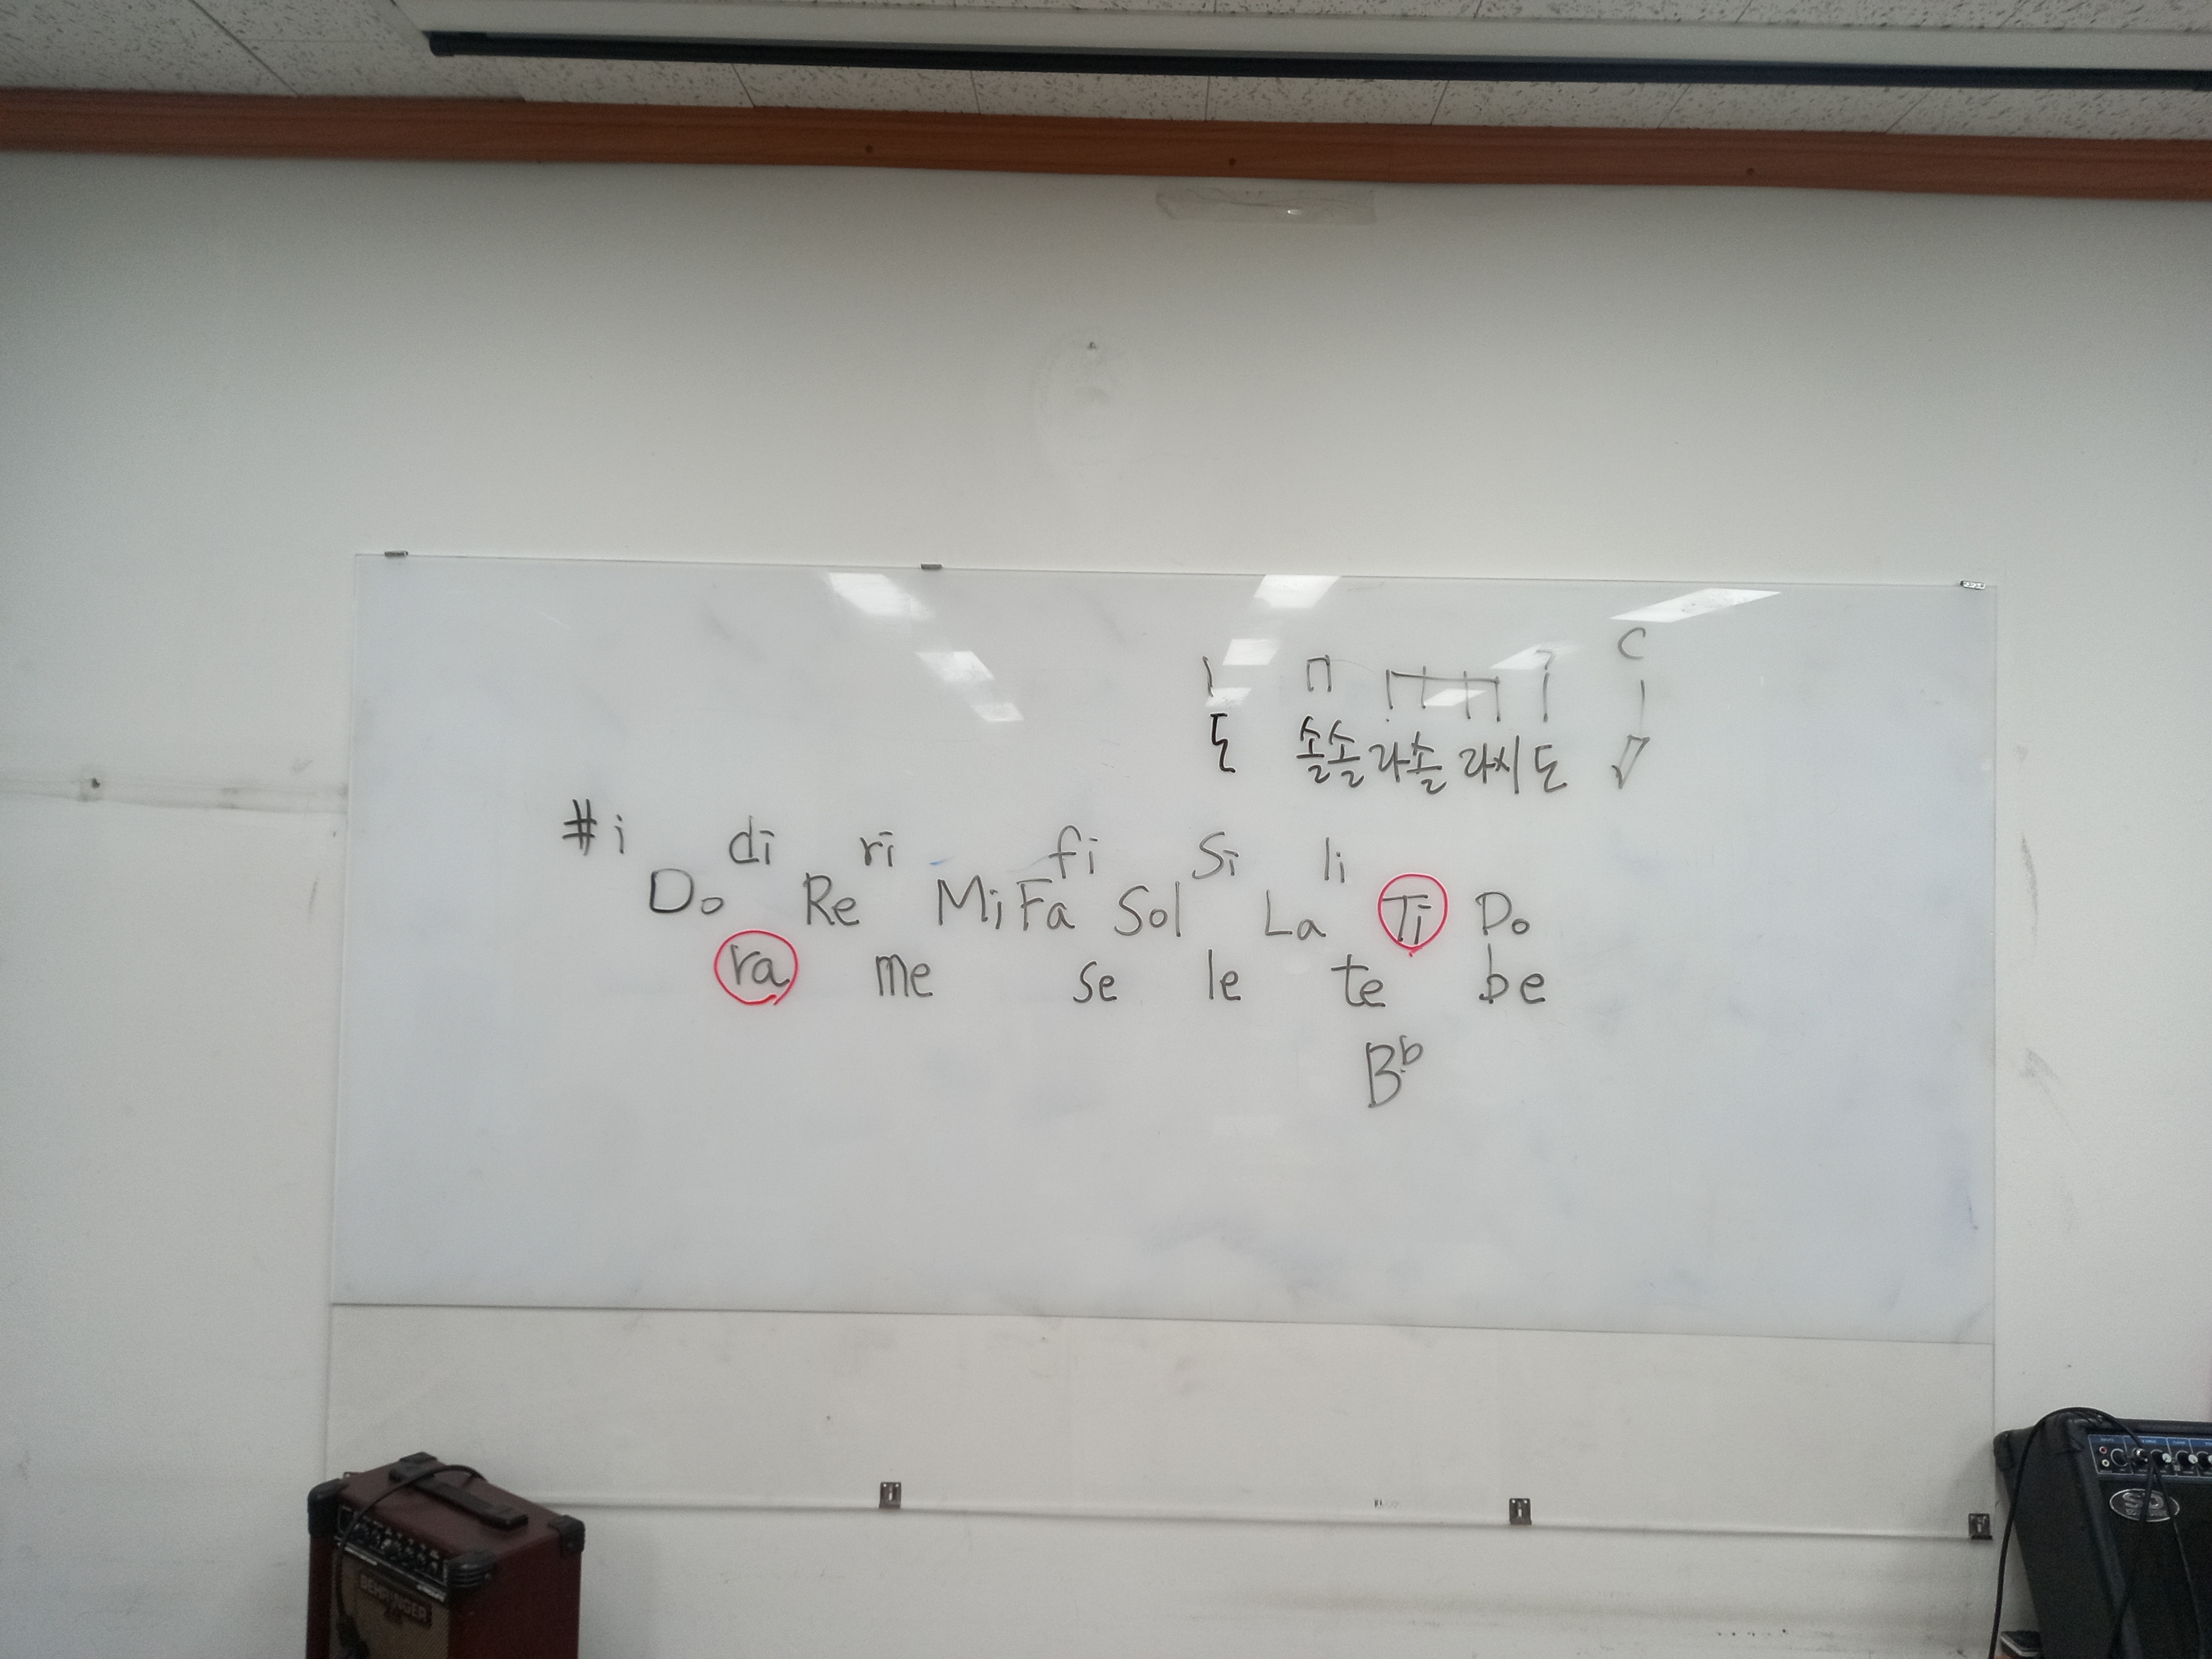 C
도 솔솔라솔 라시도
#i di ri fi Si li
Do Re Mi Fa Sol La Ti Do
ra me se le te be
Bb
BEHRINGER